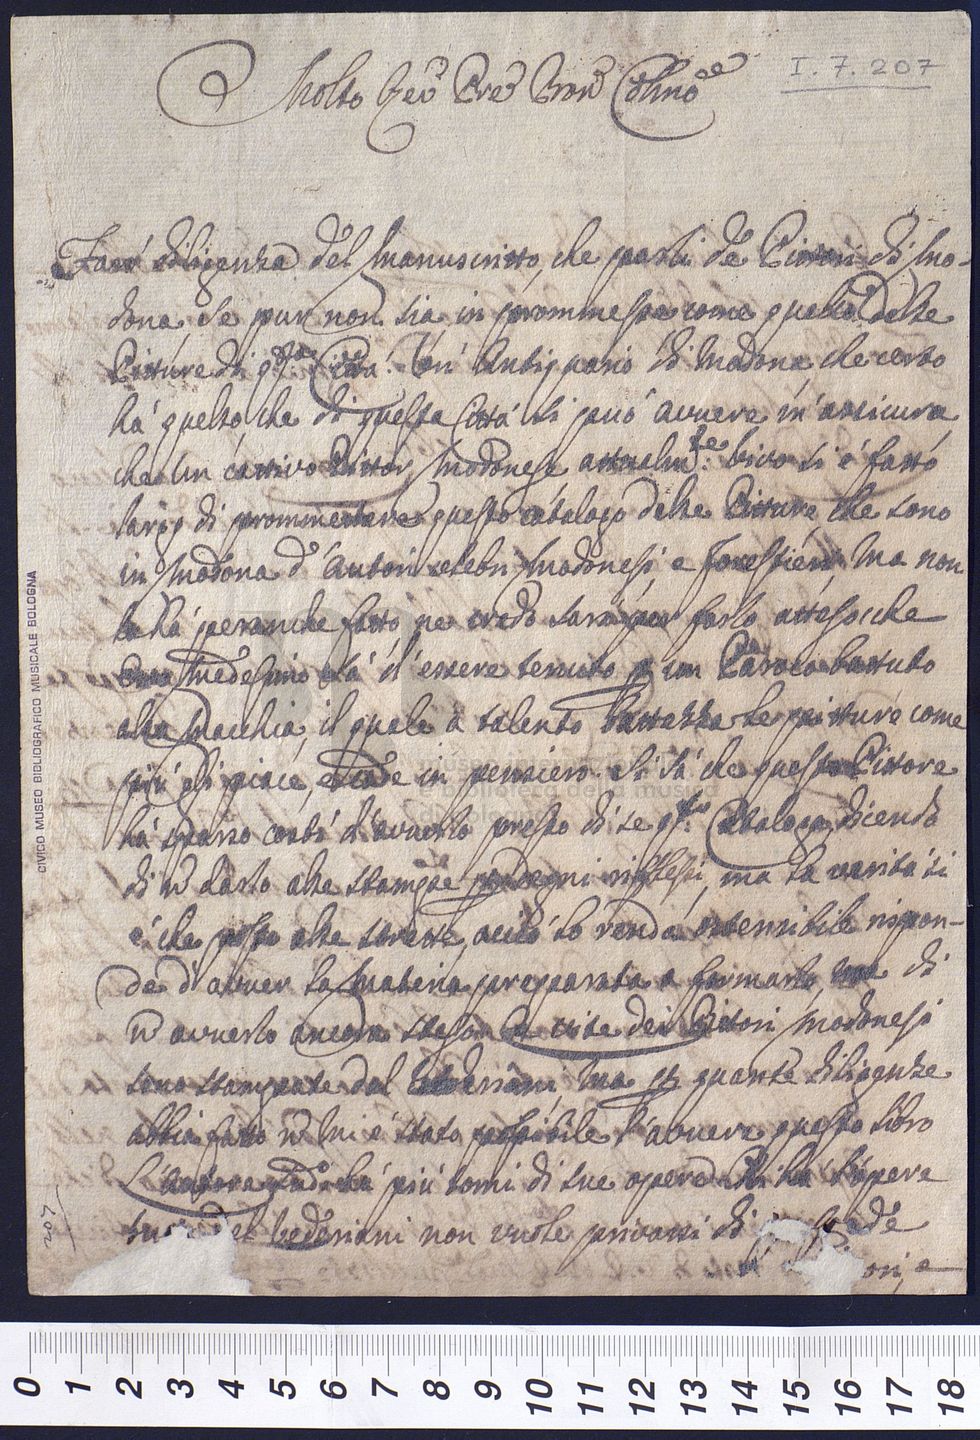 I. 7. 207
Molto Rev Pre Pron Colmo
Farò diligenza del Manuscritto, che parli de Pittori di Mo-
dona, se pur non sia in prommessa come quello delle
Pitture di qta Città. Un Antiquario di Modona che certo
hà quello, che di questa Città si può avuere m'assicura
che un cattivo Pittor Modonese attualmte vivo si è fatto
largo di prommettere questo catalogo delle Pitture, che sono
in Modona d'Autori celebri Modonesi, e forestieri, ma non
lo hà peranche fatto ne credo sarà per farlo attesoche
medesimo stà d'essere tenuto p un battuto
alla Macchia, il quale à talento battezza le pitture come
più gli piace e cade in pensiero. Si sà che questo Pittore
hà sparso d'avuerlo presso di se qto Catalogo, dicendo
di ñ darlo alle stampe riflessi, ma la verità si
è che posto alle strette, acciò lo renda ostensibile rispon-
de d'avuer la Materia preparata a formarlo, ma di
ñ avuerlo ancora steso. Le vite dei Pittori Modonesi
sono stampate dal Vedriani, Ma p quante diligenze
abbia fatto ñ Mi è stato possibile l'avuere questo libro
L'Autore hà più tomi di sue opere Chi hà l'opera
del Vedriani non vuole privarsi di
ori, e
207
CIVICO MUSEO BIBLIOGRAFICO MUSICALE BOLOGNA
museo
e biblioteca della musica
0 1 2 3 4 5 6 7 8 9 10 11 12 13 14 15 16 17 18